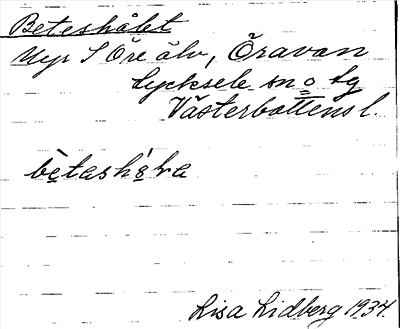 Beteshålet
Myr S Öre älv, Öravan
Lycksele sn o lg
Västerbottens l.
bètashǫ́lɐ
Lisa Lidberg 1934.